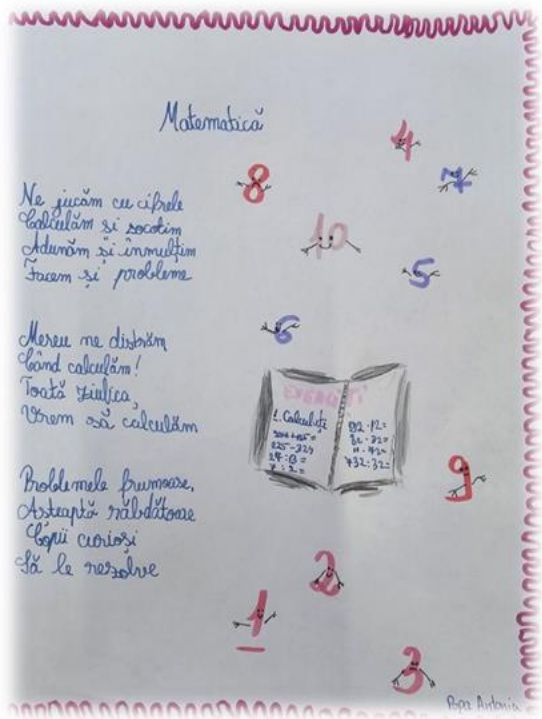 Matematică
Ne jucăm cu cifrele
Calculăm si socotim
Adunăm și înmulțim
Facem și probleme
Mereu ne distrăm
Când calculăm!
Toată ziulica,
Vrem să calculăm
Problemele frumoase,
Așteaptă răbdătoare
Copii curioși
Să le rezolve
4
8
7
10
5
6
1. Calculați
27:3=
7:2=
82·12=
32·32=
732:32=
9
2
1
3
Popa Antonia